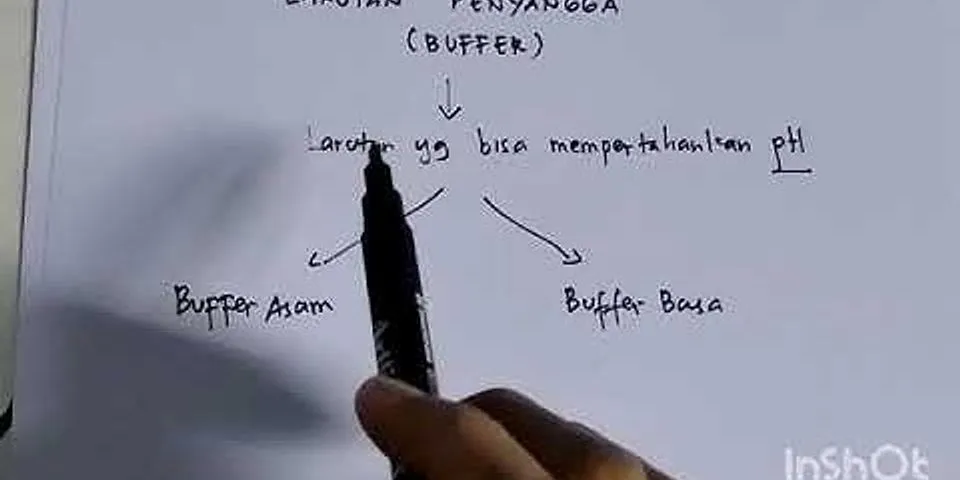 LARUTAN PENYANGGA
(BUFFER)
Larutan yg bisa mempertahankan pH
Buffer Asam
Buffer Basa
InShOt